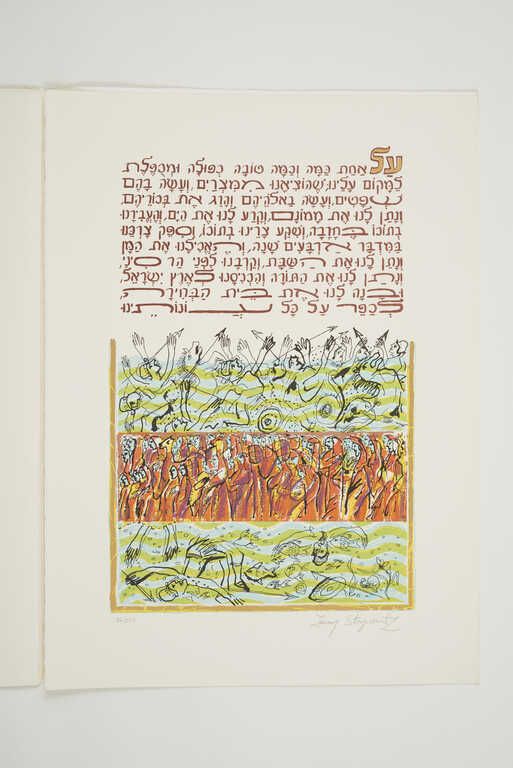 עַל אַחַת כַּמָּה וְכַמָּה טוֹבָה כְפוּלָה וּמְכֻפֶּלֶת
לַמָּקוֹם עָלֵינוּ, שֶׁהוֹצִיאָנוּ מִמִּצְרַיִם, וְעָשָׂה בָהֶם
שְׁפָטִים, וְעָשָׂה בֵאלֹהֵיהֶם וְהָרַג אֶת בְּכוֹרֵיהֶם,
וְנָתַן לָנוּ אֶת מָמוֹנָם, וְקָרַע לָנוּ אֶת הַיָּם, וְהֶעֱבִירָנוּ
בְתוֹכוֹ בֶּחָרָבָה, וְשִׁקַּע צָרֵינוּ בְּתוֹכוֹ, וְסִפֵּק צָרְכֵּנוּ
בַּמִּדְבָּר אַרְבָּעִים שָׁנָה, וְהֶאֱכִילָנוּ אֶת הַמָּן
וְנָתַן לָנוּ אֶת הַשַּׁבָּת, וְקֵרְבָנוּ לִפְנֵי הַר סִינַי,
וְנָתַן לָנוּ אֶת הַתּוֹרָה וְהִכְנִיסָנוּ לְאֶרֶץ יִשְׂרָאֵל,
וּבָנָה לָנוּ אֶת בֵּית הַבְּחִירָה,
לְכַפֵּר עַל כָּל עֲוֹנוֹתֵינוּ